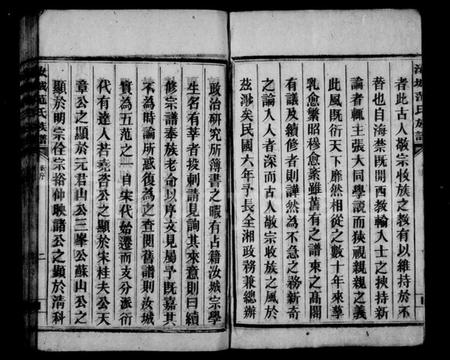 汝城范氏族譜
者此古人敬宗收族之教有以維持於不
替也自海禁既開西教輸入人士之挾持新
論者輒主張大同學說而狹視親親之義
此風既衍天下靡然相從之數十年來華
乳愈繁昭穆愈紊雖舊有之譜束之高閣
有議及續修者則譁然為不急之務新奇
之論入人者深而古人敬宗收族之風於
茲渺矣民國六年予長全湘政務兼總辦
政治研究所簿書之暇有占籍汝城宗學
生名有莘者投刺請見詢其來意則曰續
修宗譜奉族老命以序文見屬予既嘉其
不為時論所惑復為之查閱舊譜則汝城
質為五范之一自宋代始遷而支分派衍
代有達人若堯咨公之顯於宋桂夫公天
章公之顯於元君山公三峯公蘇山公之
顯於明宗佺宗裕仲畎諸公之顯於清科
汝城范氏族譜
卷首
二